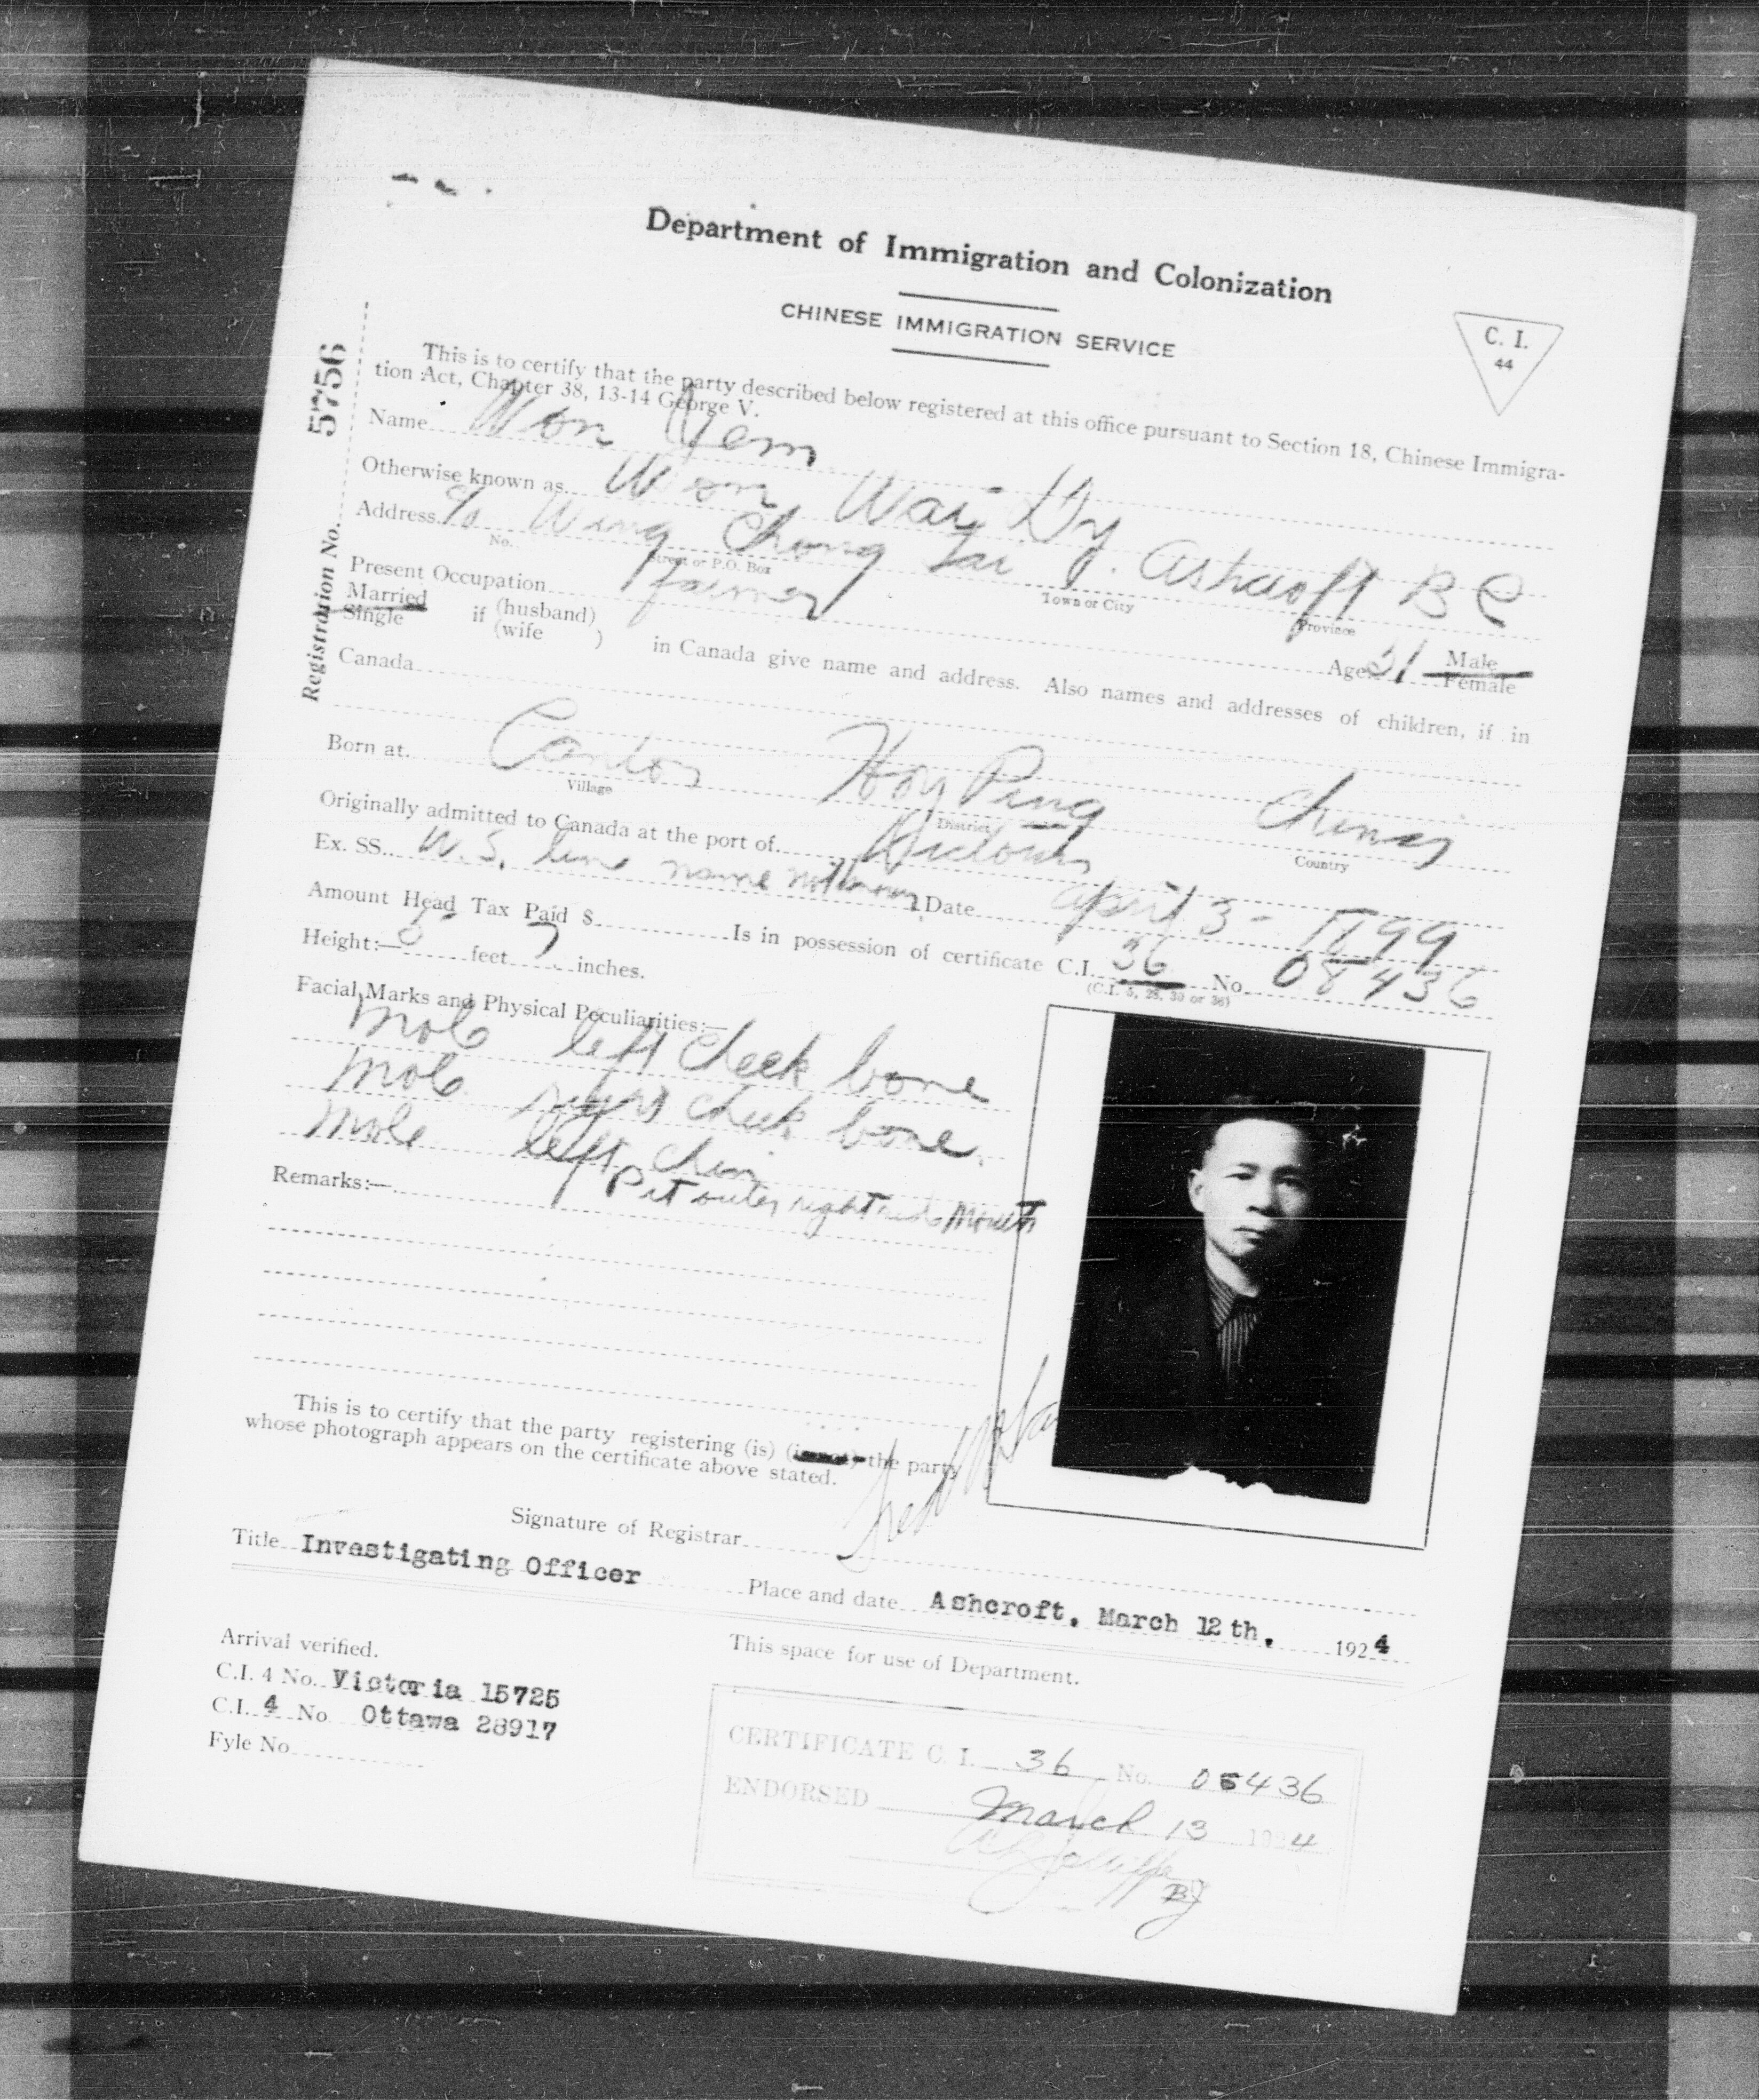 Department of Immigration and Colonization
CHINESE IMMIGRATION SERVICE
C. I.
44
Registration No. 5756
This is to certify that the party described below registered at this office pursuant to Section 18, Chinese Immigra-
tion Act, Chapter 38, 13-14 George V.
Name Won Yem
Otherwise known as Won Wai Dy
Address c/o Wing Chong Tai J. Ashcroft B C
No. Street or P.O. Box Town or City Province
Present Occupation farmer Age 51 Male
Female
Married
Single if (husband)
(wife ) in Canada give name and address. Also names and addresses of children, if in
Canada
Born at Canton Hoy Ping China
Village District Country
Originally admitted to Canada at the port of Victoria
Ex. SS. N.S. line name not known Date april 3 - 1899
Amount Head Tax Paid $ Is in possession of certificate C.I. 36 No. 08436
(C.I. 5, 28, 30 or 36)
Height:— 5 feet 7 inches.
Facial Marks and Physical Peculiarities:—
Mole left cheek bone
Mole right cheek bone.
Mole left chin
Pit outer right side Mouth
Remarks:—
This is to certify that the party registering (is) (is not) the party
whose photograph appears on the certificate above stated.
Signature of Registrar
Title Investigating Officer Place and date Ashcroft, March 12th, 1924
Arrival verified.
C.I. 4 No. Victoria 15725
C.I. 4 No Ottawa 28917
Fyle No
This space for use of Department.
CERTIFICATE C. I. 36 No. 05436
ENDORSED March 13 1924
BJ